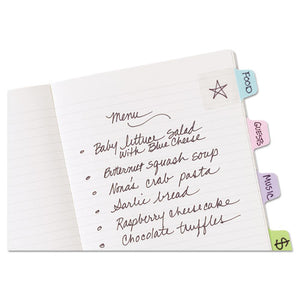 Menu
Baby lettuce Salad
With Blue Cheese
Butternut squash soup
Nona's crab pasta
Garlic bread
Raspberry cheesecake
Chocolate truffles
FOOD
GUESTS
MUSIC
$